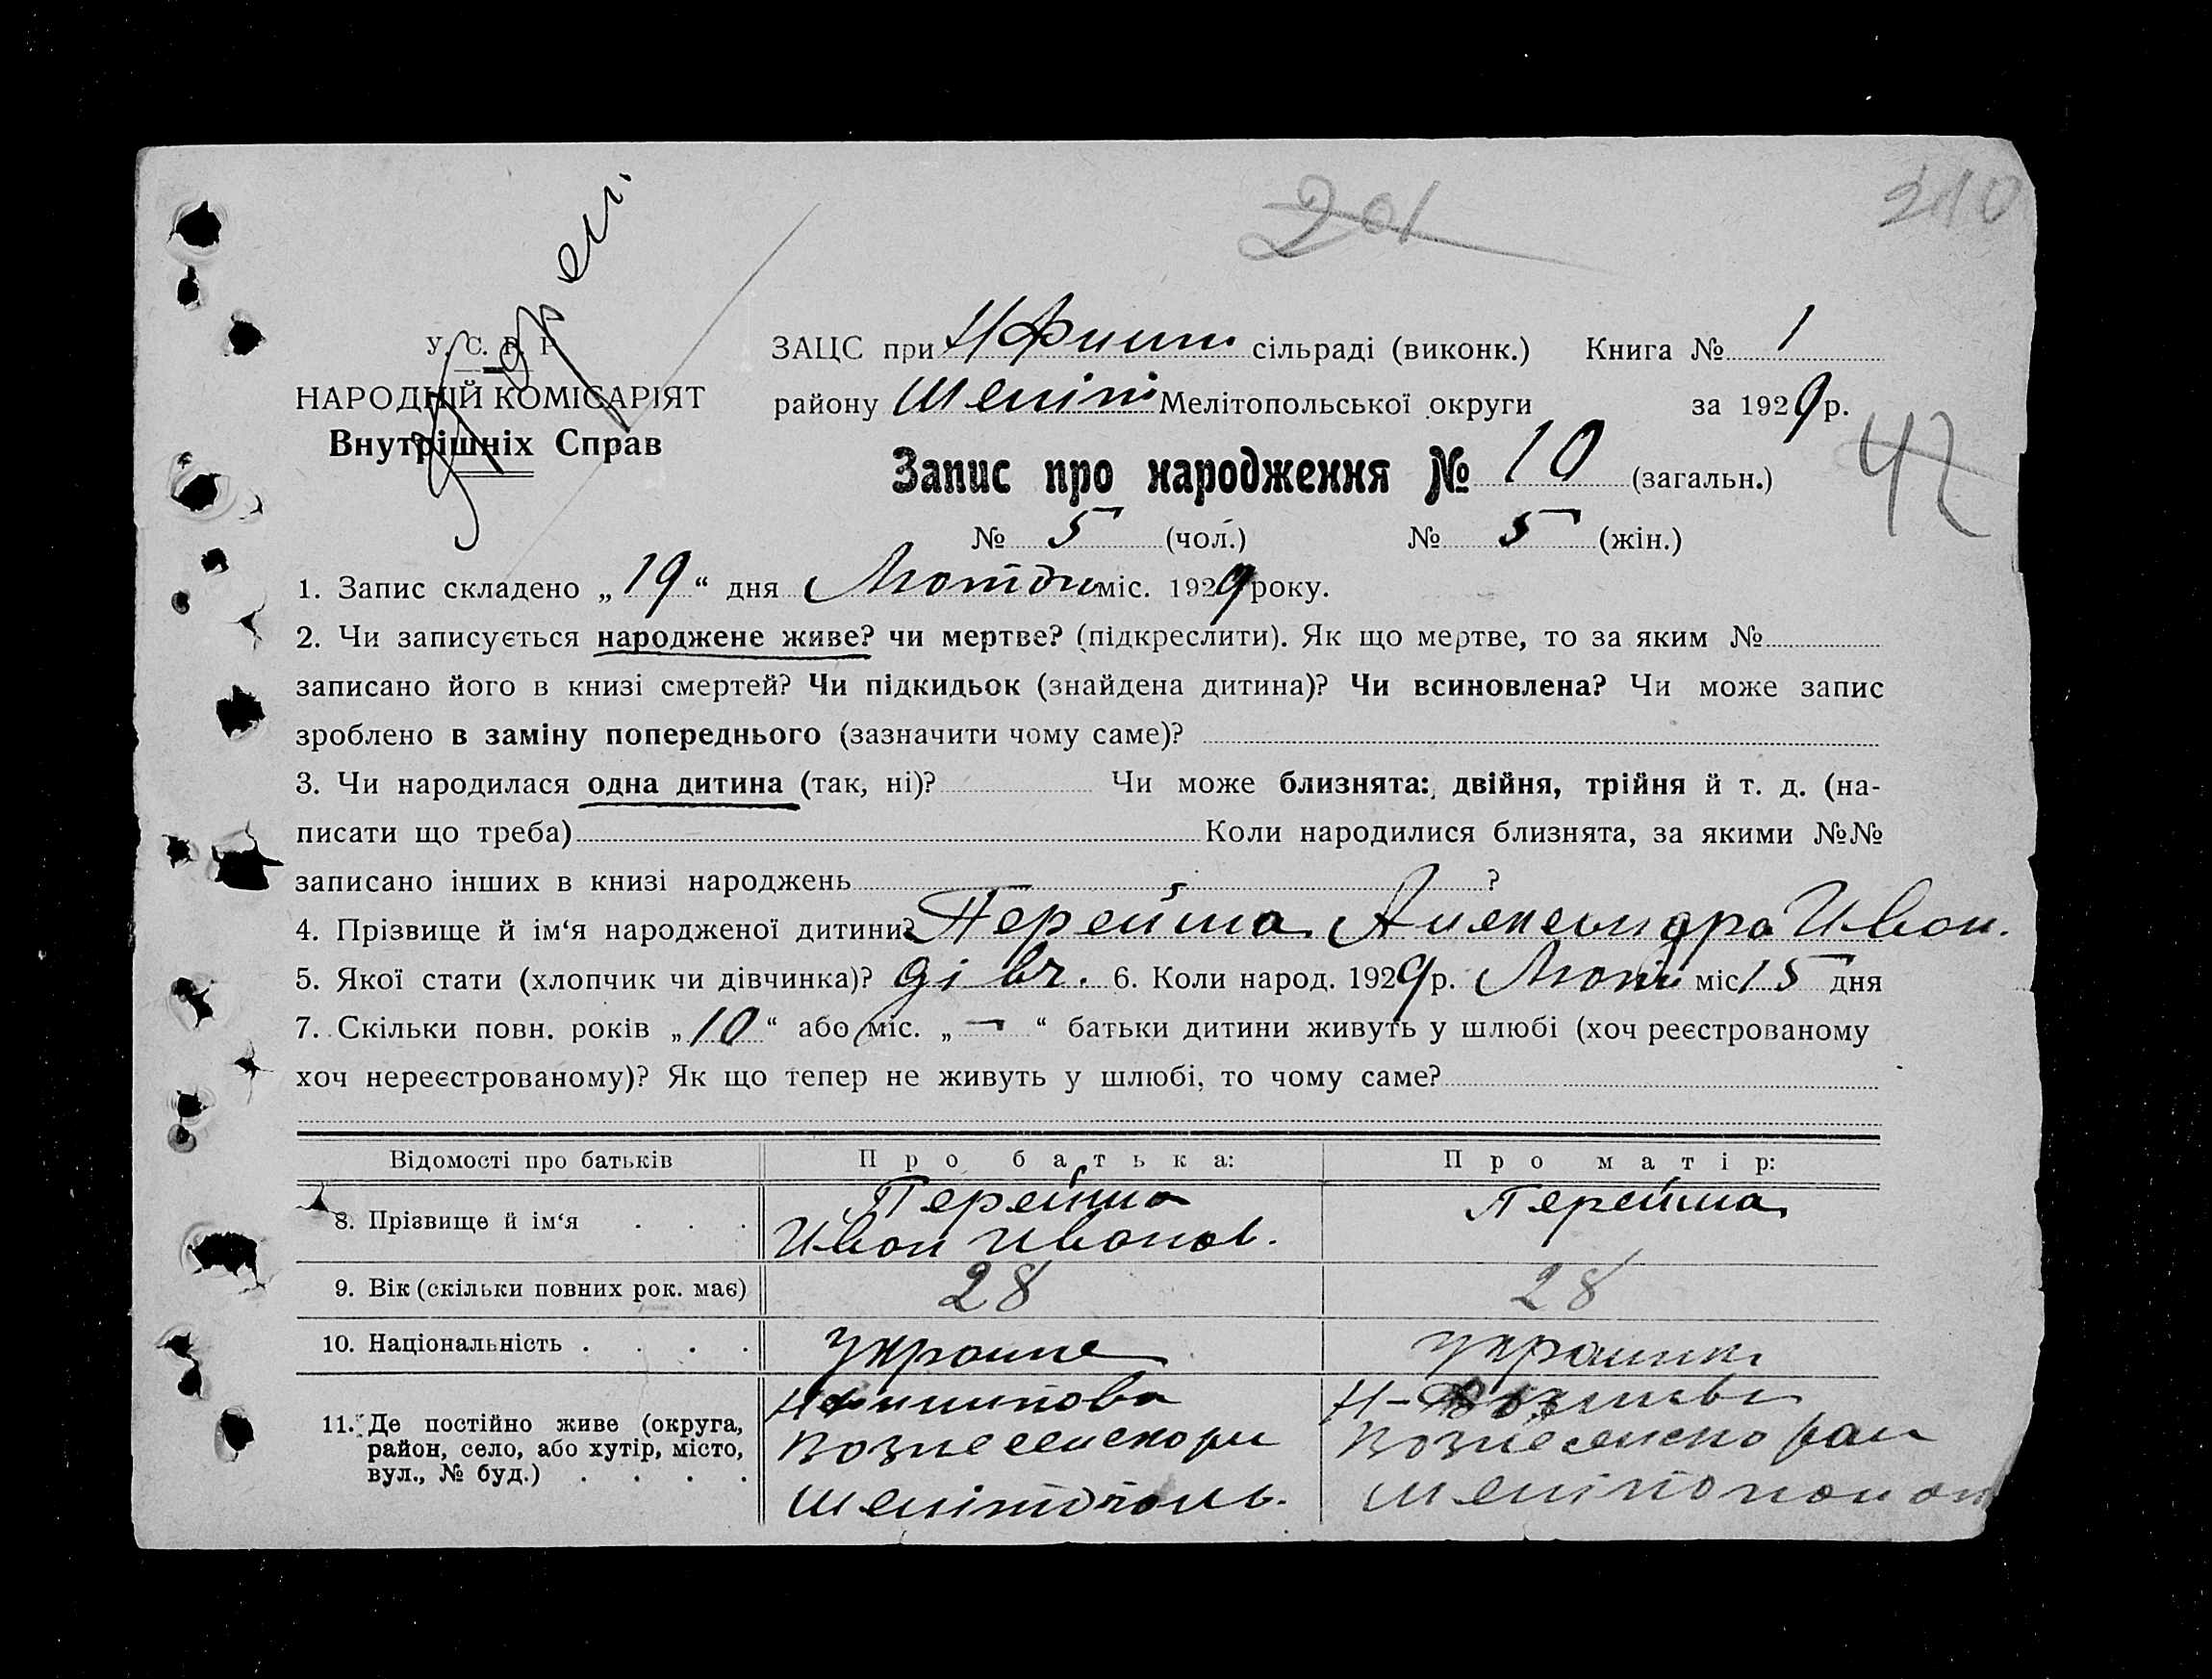 201
210
У. С. Р. Р.
НАРОДНІЙ КОМІСАРІЯТ
Внутрішніх Справ
ЗАЦС при сільраді (виконк.) Книга № 1
району Меліт Мелітопольської округи за 1929 р.
42
Запис про народження № 10 (загальн.)
№ 5 (чол.) № 5 (жін.)
1. Запис складено „19“ дня міс. 1929 року.
2. Чи записується народжене живе? чи мертве? (підкреслити). Як що мертве, то за яким №
записано його в книзі смертей? Чи підкидьок (знайдена дитина)? Чи всиновлена? Чи може запис
зроблено в заміну попереднього (зазначити чому саме)?
3. Чи народилася одна дитина (так, ні)? Чи може близнята: двійня, трійня й т. д. (на-
писати що треба) Коли народилися близнята, за якими №№
записано інших в книзі народжень ?
4. Прізвище й ім‘я народженої дитини? Перейма Александра Иван.
5. Якої стати (хлопчик чи дівчинка)? дівч. 6. Коли народ. 1929 р. міс. 15 дня
7. Скільки повн. років „10“ або міс. „—“ батьки дитини живуть у шлюбі (хоч реєстрованому
хоч нереєстрованому)? Як що тепер не живуть у шлюбі, то чому саме?
Відомості про батьків Про батька: Про матір:
8. Прізвище й ім‘я . . . Перейма Иван Иванов. Перейма
9. Вік (скільки повних рок. має) 28 28
10. Національність . . . . Украине
11. Де постійно живе (округа,
район, село, або хутір, місто,
вул., № буд.) . . . .
Мелітополь.